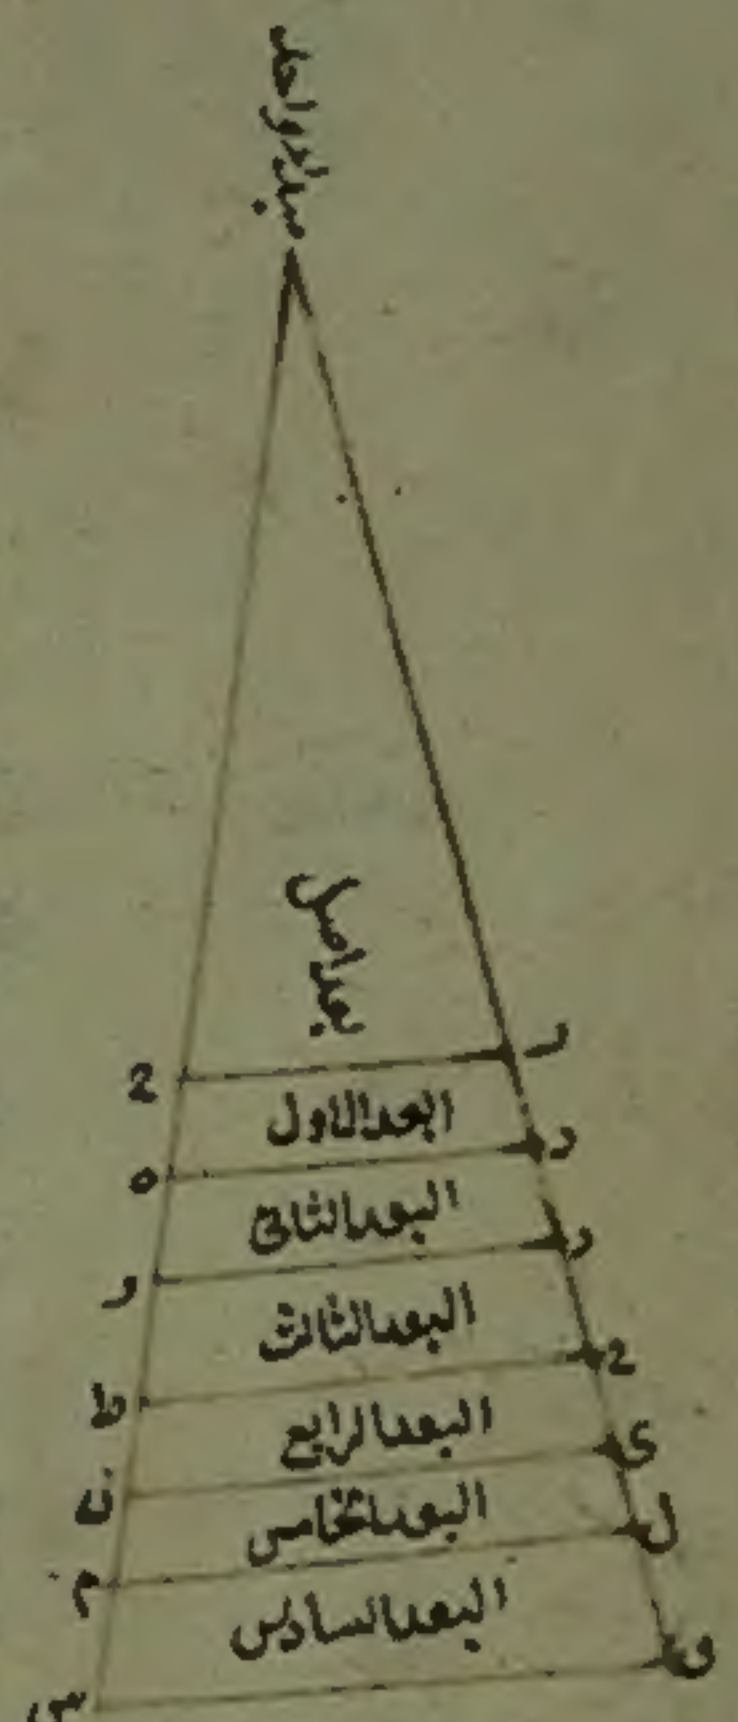 مبدء واحد
بعد اصل
ب
ج
البعد الاول
د
ه
البعد الثانی
ر
و
البعد الثالث
ح
ط
البعد الرابع
ی
ک
البعد الخامس
ل
م
البعد السادس
ن
س